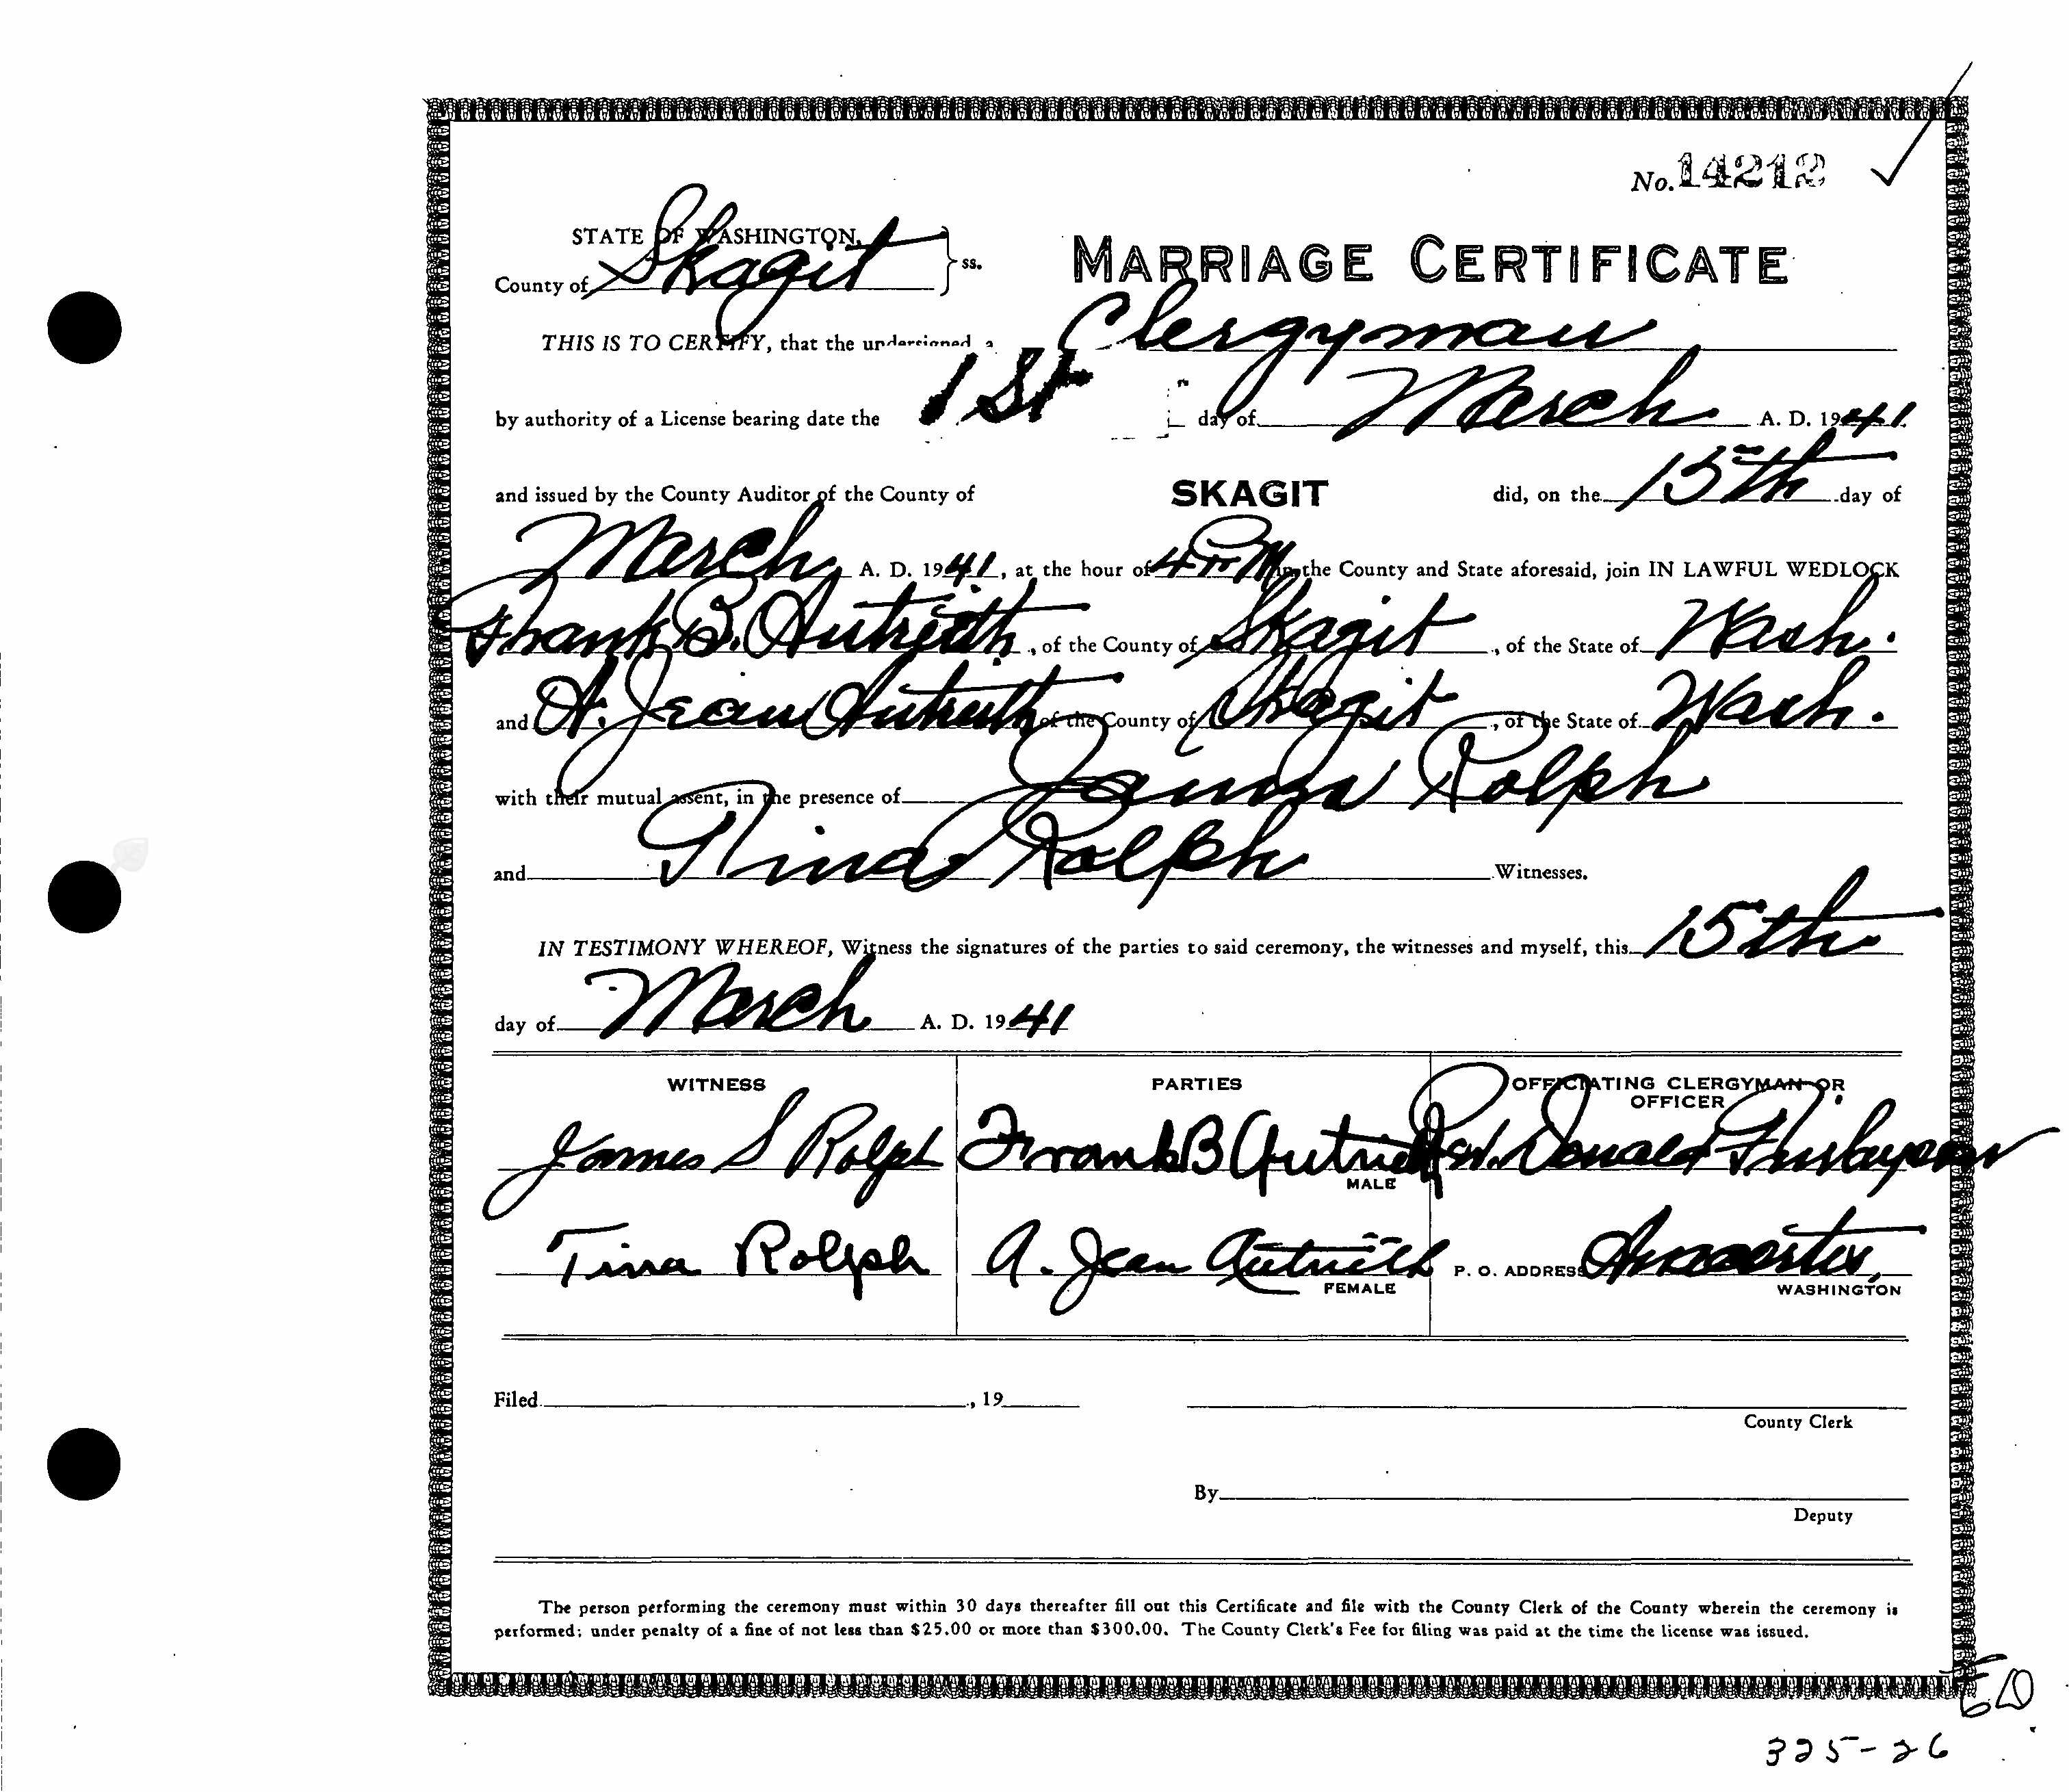 No. 14212
STATE OF WASHINGTON, } ss.
County of Skagit
MARRIAGE CERTIFICATE
THIS IS TO CERTIFY, that the undersigned a Clergyman
by authority of a License bearing date the 1st day of March A. D. 1941
and issued by the County Auditor of the County of SKAGIT did, on the 15th day of
March A. D. 1941, at the hour of 4 P.M. in the County and State aforesaid, join IN LAWFUL WEDLOCK
Frank B. Autrieth, of the County of Skagit, of the State of Wash.
and A. Jean Autrieth of the County of Skagit, of the State of Wash.
with their mutual assent, in the presence of James Rolph
and Tina Rolph Witnesses.
IN TESTIMONY WHEREOF, Witness the signatures of the parties to said ceremony, the witnesses and myself, this 15th
day of March A. D. 1941
WITNESS PARTIES OFFICIATING CLERGYMAN OR
OFFICER
James S Rolph Frank B Autrieth Rev. Donald
MALE
Tina Rolph A. Jean Autrieth P. O. ADDRESS Anacortes,
FEMALE WASHINGTON
Filed , 19
County Clerk
By
Deputy
The person performing the ceremony must within 30 days thereafter fill out this Certificate and file with the County Clerk of the County wherein the ceremony is
performed; under penalty of a fine of not less than $25.00 or more than $300.00. The County Clerk's Fee for filing was paid at the time the license was issued.
325-26